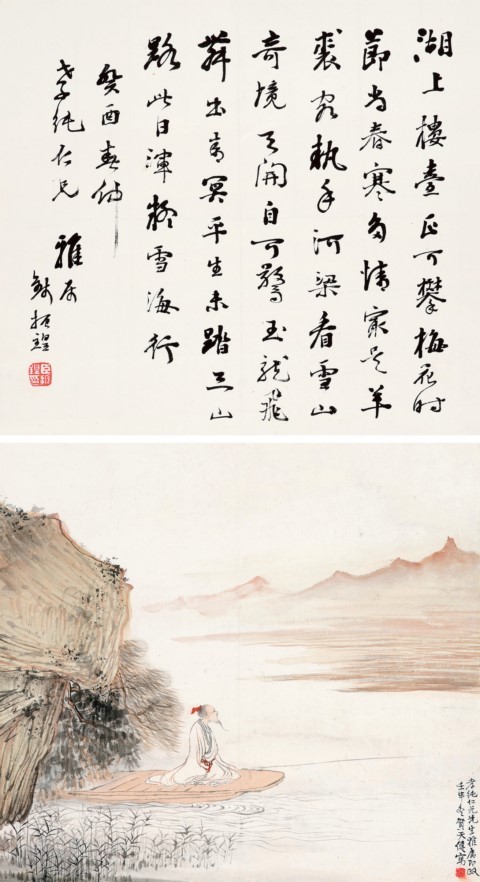 湖上樓臺正可攀梅花時
節尚春寒多情最是羊
裘客執手河梁看雪山
奇境天開自可驚玉龍飛
舞出青冥平生未踏三山
路此日渾疑雪海行
癸酉春仲
孝純仁兄 雅屬
錢振鍠
孝純仁兄先生雅屬即政
壬申冬賀天健寫